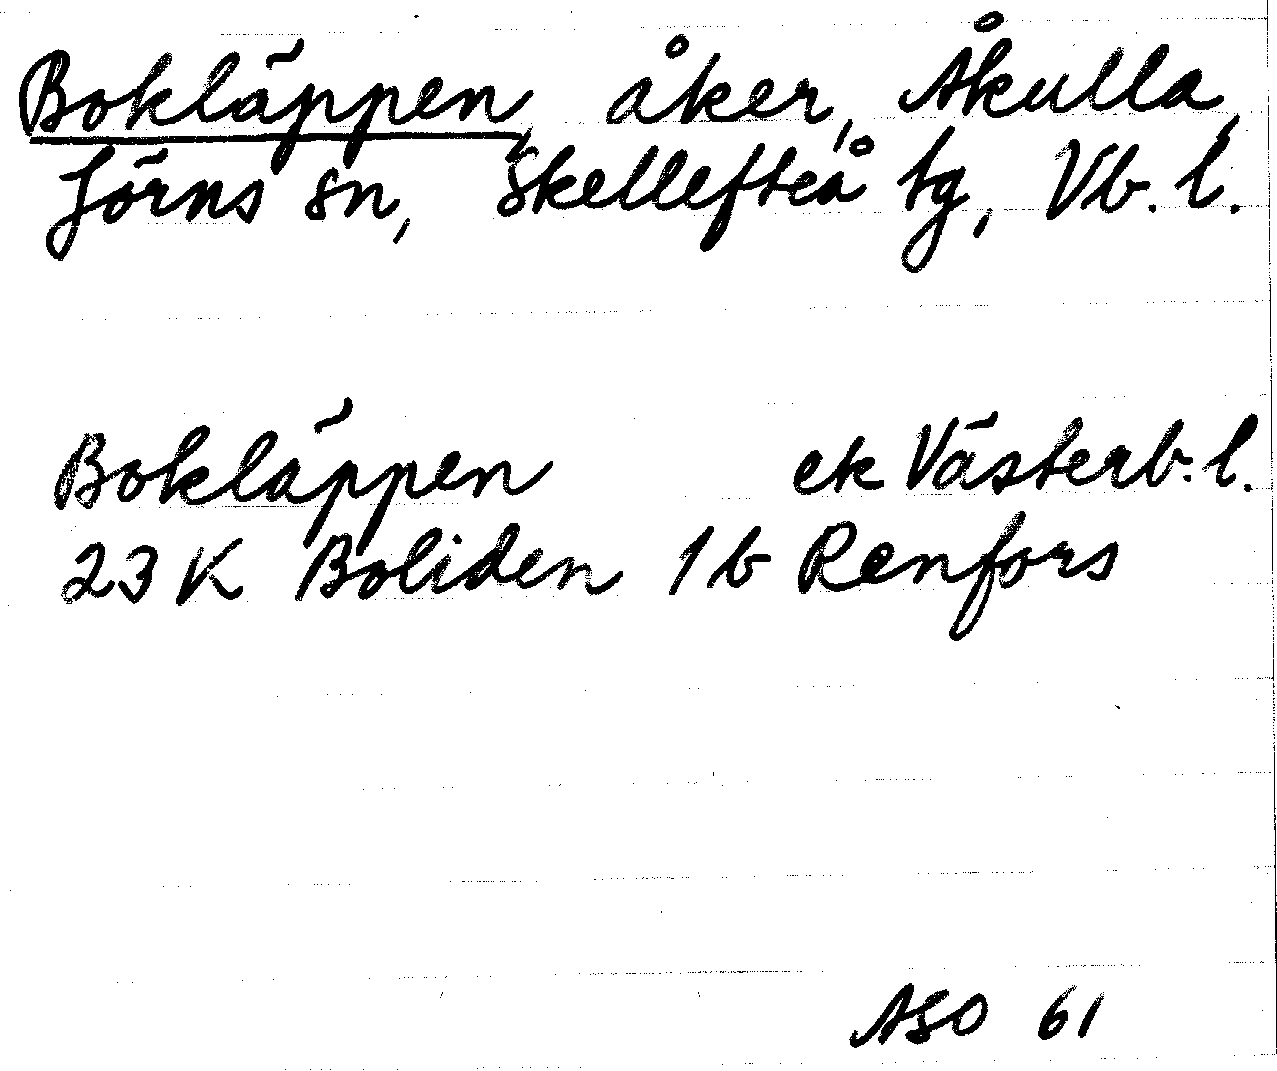 Bokläppen, åker, Åkulla,
Jörns sn, Skellefteå tg, Vb. l.
Bokläppen ek Västerb. l.
23 K Boliden 1 b Renfors
ASO 61